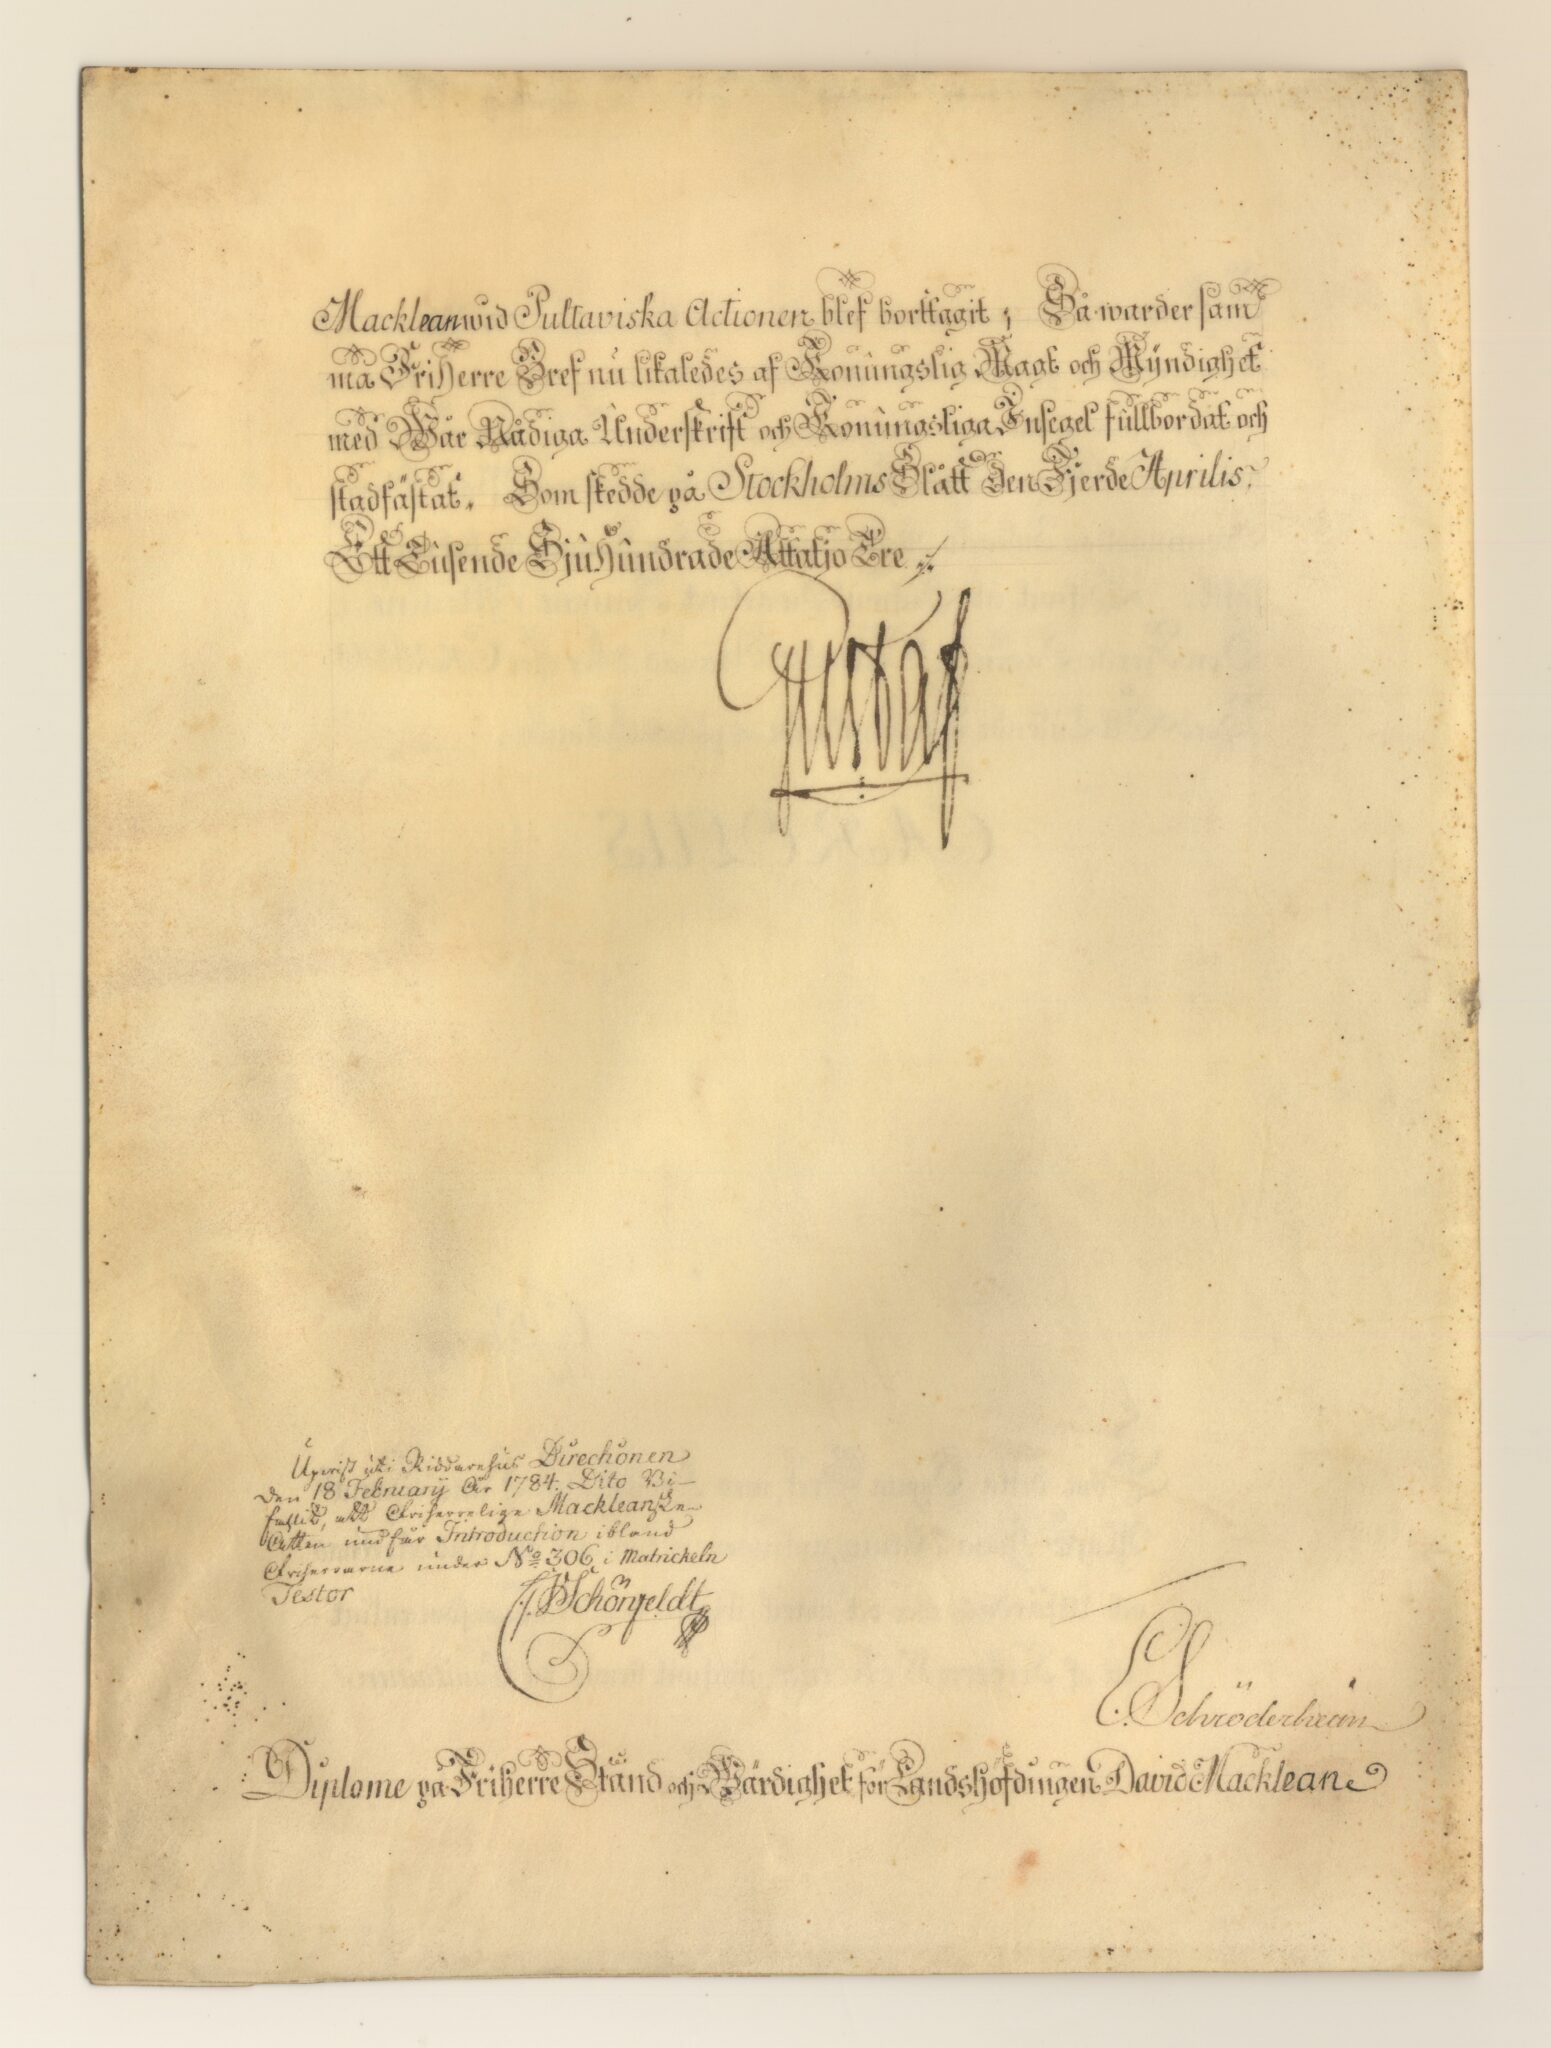 Macklean wid Pultaviska Actionen blef borttagit; Så warder sam
ma Friherre Bref nu likaledes af Konungslig Magt och Myndighet
med Wår Nådiga Underskrift och Konungsliga Insegel fullbordat och
stadfästat. Som skedde på Stockholms Slått den Fjerde Aprilis.
Ett Tusende Sjuhundrade Åttatjo Tre
Gustaf
Upvist uti Riddarehus Directionen
den 18 February År 1784. Dito
att Friherrelige Mackleanske
Ätten undfår Introduction ibland
Friherrarne under No 306 i Matrickeln
Testor
Schönfeldt
E. Schröderheim
Diplome på Friherre Stånd och Wärdighet för Landshöfdingen David Macklean